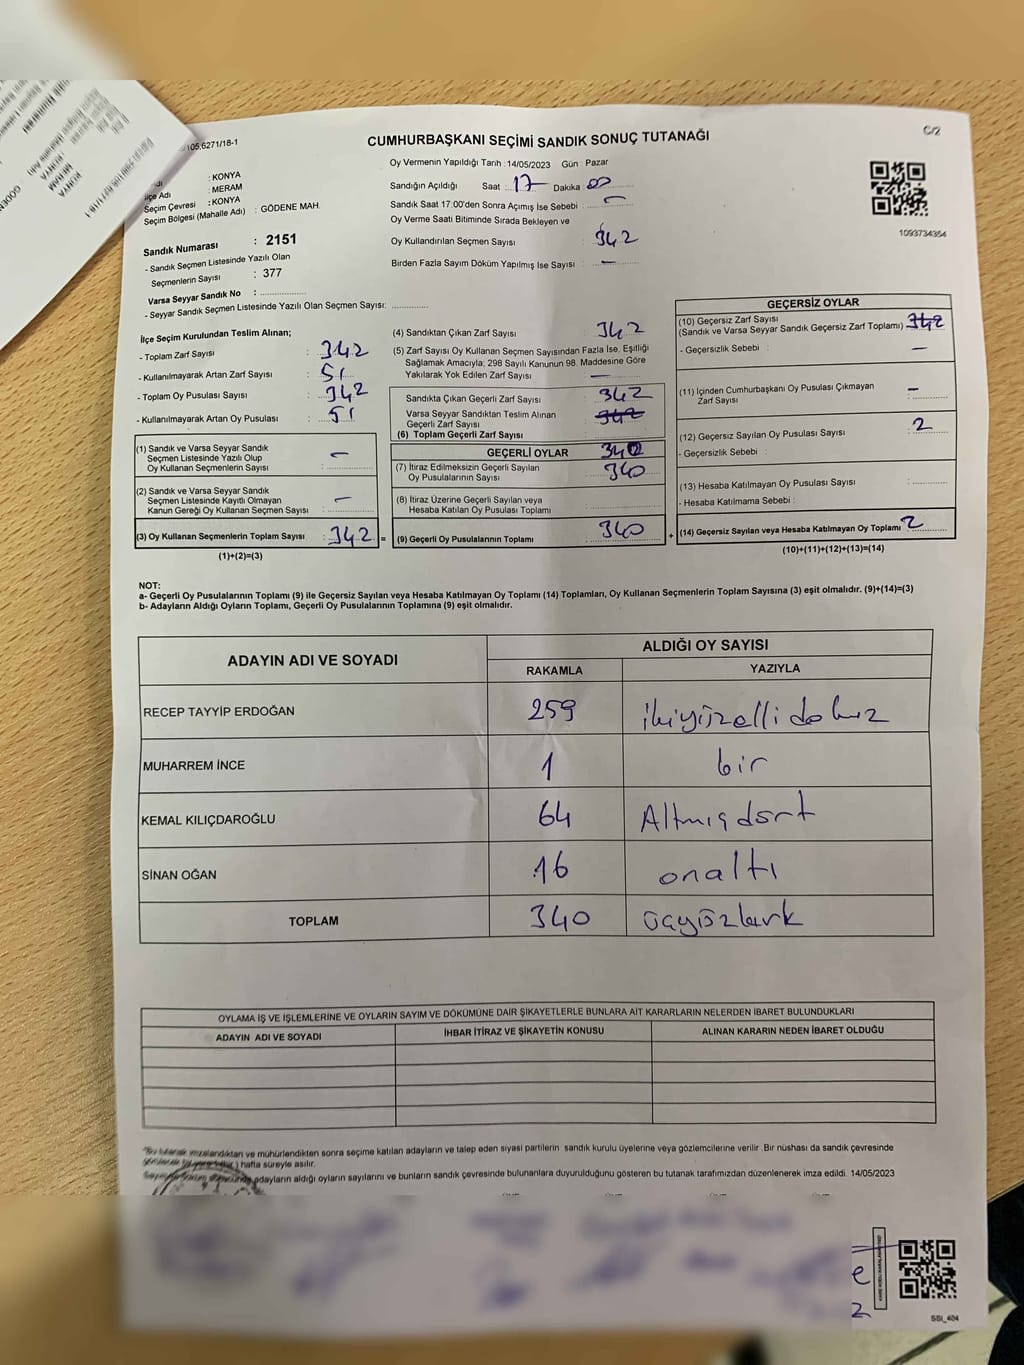 105.6271/18-1
CUMHURBAŞKANI SEÇİMİ SANDIK SONUÇ TUTANAĞI
C/2
: KONYA
İlçe Adı : MERAM
Seçim Çevresi : KONYA
Seçim Bölgesi (Mahalle Adı) : GÖDENE MAH.
Sandık Numarası : 2151
- Sandık Seçmen Listesinde Yazılı Olan
Seçmenlerin Sayısı : 377
Varsa Seyyar Sandık No :
- Seyyar Sandık Seçmen Listesinde Yazılı Olan Seçmen Sayısı:
Oy Vermenin Yapıldığı Tarih :14/05/2023 Gün : Pazar
Sandığın Açıldığı Saat : 17 Dakika 00
Sandık Saat 17:00'den Sonra Açımış İse Sebebi : –
Oy Verme Saati Bitiminde Sırada Bekleyen ve
Oy Kullandırılan Seçmen Sayısı : 342
Birden Fazla Sayım Döküm Yapılmış İse Sayısı : –
1093734354
İlçe Seçim Kurulundan Teslim Alınan;
- Toplam Zarf Sayısı : 342
- Kullanılmayarak Artan Zarf Sayısı : 51
- Toplam Oy Pusulası Sayısı : 342
- Kullanılmayarak Artan Oy Pusulası : 51
(1) Sandık ve Varsa Seyyar Sandık
Seçmen Listesinde Yazılı Olup
Oy Kullanan Seçmenlerin Sayısı : –
(2) Sandık ve Varsa Seyyar Sandık
Seçmen Listesinde Kayıtlı Olmayan
Kanun Gereği Oy Kullanan Seçmen Sayısı : –
(3) Oy Kullanan Seçmenlerin Toplam Sayısı : 342 =
(1)+(2)=(3)
(4) Sandıktan Çıkan Zarf Sayısı : 342
(5) Zarf Sayısı Oy Kullanan Seçmen Sayısından Fazla İse, Eşitliği
Sağlamak Amacıyla; 298 Sayılı Kanunun 98. Maddesine Göre
Yakılarak Yok Edilen Zarf Sayısı : –
Sandıkta Çıkan Geçerli Zarf Sayısı : 342
Varsa Seyyar Sandıktan Teslim Alınan
Geçerli Zarf Sayısı : 342
(6) Toplam Geçerli Zarf Sayısı
GEÇERLİ OYLAR 340
(7) İtiraz Edilmeksizin Geçerli Sayılan
Oy Pusulalarının Sayısı : 340
(8) İtiraz Üzerine Geçerli Sayılan veya
Hesaba Katılan Oy Pusulası Toplamı :
(9) Geçerli Oy Pusulalarının Toplamı : 340 +
GEÇERSİZ OYLAR
(10) Geçersiz Zarf Sayısı
(Sandık ve Varsa Seyyar Sandık Geçersiz Zarf Toplamı) 342
- Geçersizlik Sebebi : –
(11) İçinden Cumhurbaşkanı Oy Pusulası Çıkmayan
Zarf Sayısı : –
(12) Geçersiz Sayılan Oy Pusulası Sayısı : 2
- Geçersizlik Sebebi :
(13) Hesaba Katılmayan Oy Pusulası Sayısı :
- Hesaba Katılmama Sebebi :
(14) Geçersiz Sayılan veya Hesaba Katılmayan Oy Toplamı 2
(10)+(11)+(12)+(13)=(14)
NOT:
a- Geçerli Oy Pusulalarının Toplamı (9) ile Geçersiz Sayılan veya Hesaba Katılmayan Oy Toplamı (14) Toplamları, Oy Kullanan Seçmenlerin Toplam Sayısına (3) eşit olmalıdır. (9)+(14)=(3)
b- Adayların Aldığı Oyların Toplamı, Geçerli Oy Pusulalarının Toplamına (9) eşit olmalıdır.
ADAYIN ADI VE SOYADI
ALDIĞI OY SAYISI
RAKAMLA YAZIYLA
RECEP TAYYİP ERDOĞAN 259 ikiyüzelli dokuz
MUHARREM İNCE 1 bir
KEMAL KILIÇDAROĞLU 64 Altmışdört
SİNAN OĞAN 16 onaltı
TOPLAM 340 üçyüzkırk
OYLAMA İŞ VE İŞLEMLERİNE VE OYLARIN SAYIM VE DÖKÜMÜNE DAİR ŞİKAYETLERLE BUNLARA AİT KARARLARIN NELERDEN İBARET BULUNDUKLARI
ADAYIN ADI VE SOYADI İHBAR İTİRAZ VE ŞİKAYETİN KONUSU ALINAN KARARIN NEDEN İBARET OLDUĞU
*Bu tutanak imzalandıktan ve mühürlendikten sonra seçime katılan adayların ve talep eden siyasi partilerin sandık kurulu üyelerine veya gözlemcilerine verilir. Bir nüshası da sandık çevresinde
hafta süreyle asılır.
adayların aldığı oyların sayılarını ve bunların sandık çevresinde bulunanlara duyurulduğunu gösteren bu tutanak tarafımızdan düzenlenerek imza edildi. 14/05/2023
SSI_404